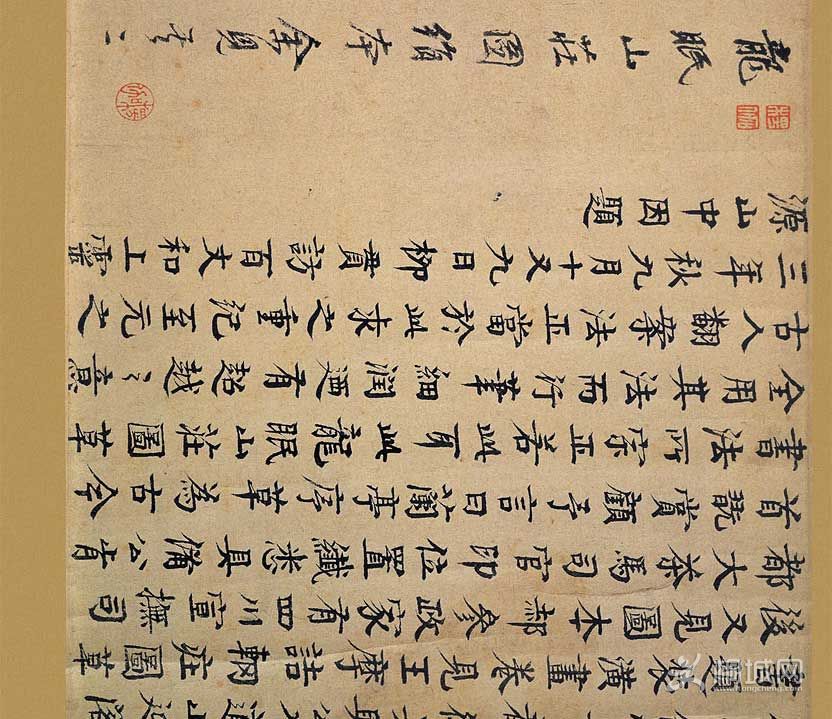 題裝潢畫卷見王摩詰輞莊圖草
後又見圖本郝參政家有四川宣撫司
都大茶馬司官印位置纖悉具備公肯
首甄賞顧予言曰蘭亭序草為古今
書法所宗正若此耳此龍眠山莊圖草
全用其法而行筆細潤迺有超越之意
古人翻案法正當於此求之重紀至元之
三年秋九月十又九日柳貫訪百丈和上靈
源山中因題
龍眠山莊圖本余見二
桐城网